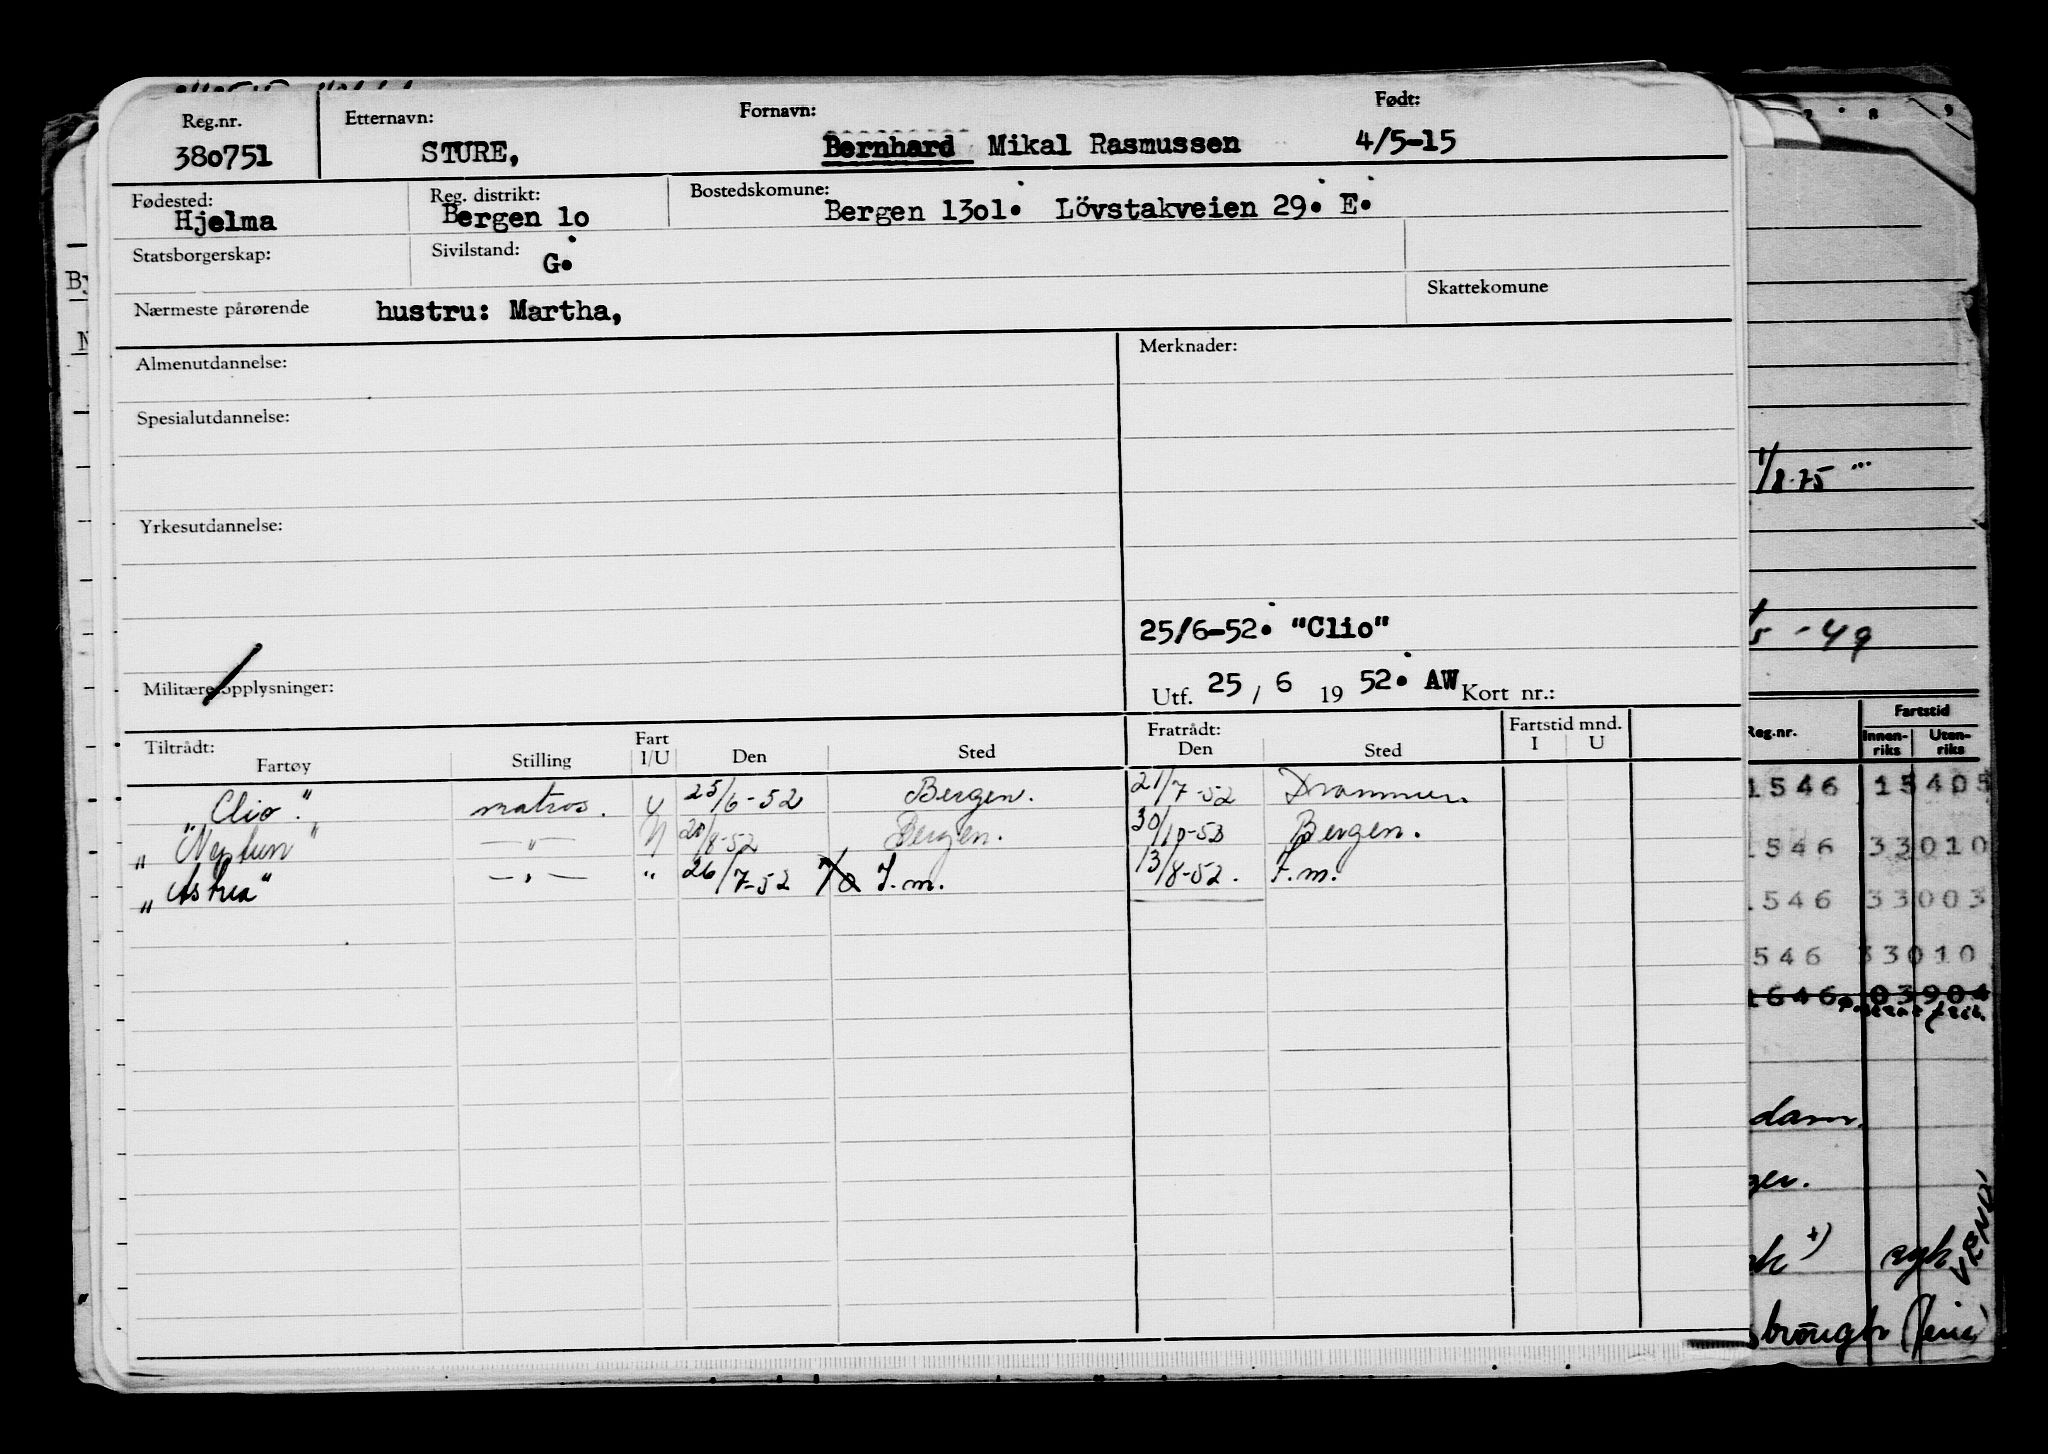 Reg.nr. Etternavn: Fornavn: Født:
380751 STURE, Bernhard Mikal Rasmussen 4/5-15
Fødested: Reg. distrikt: Bostedskomune:
Hjelma Bergen 10 Bergen 1301. Lövstakveien 29. E.
Statsborgerskap: Sivilstand: G.
Skattekomune
Nærmeste pårørende hustru: Martha,
Almenutdannelse: Merknader:
Spesialutdannelse:
Yrkesutdannelse:
25/6-52. "Clio"
Militære opplysninger: Utf. 25 / 6 19 52. AW Kort nr.:
Tiltrådt: Fart Fratrådt: Fartstid mnd.
Fartøy Stilling I/U Den Sted Den Sted I U
"Clio". matros. U 25/6-52 Bergen. 21/7-52 Drammen.
"Neptun" —"— /8-52 Bergen. 30/10-53 Bergen.
"Astrea" —"— " 26/7-52 T.m. 13/8-52. F.m.
By
N
1/8-75
-49
Reg.nr. Fartstid
Innen-riks Uten-riks
1546 15405
1546 33010
1546 33003
546 33010
1646 03904
dam.
gen.
syk